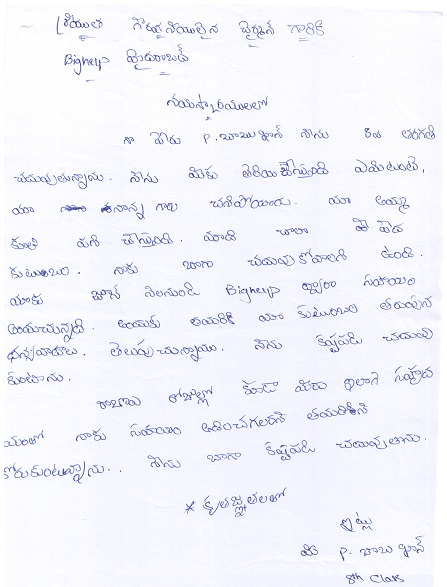 శ్రీయుత గౌరవనీయులైన ఛైర్మన్ గారికి
Bighelp హైదరాబాద్
నమస్కారములతో
నా పేరు P. బాబు ఖాన్ నేను 8వ తరగతి
చదువుతున్నాను. నేను మీకు తెలియ చేస్తుంది ఏమిటంటే,
మా నాన్న గారు చనిపోయారు. మా అమ్మ
కూలి పని చేస్తుంది. మాది చాలా పేద
కుటుంబం. నాకు బాగా చదువుకోవాలని ఉంది.
మాకు జూన్ నెలనుండి Bighelp ద్వారా సహాయం
అందుచున్నది. అందుకు తమరికి మా కుటుంబం తరుపున
ధన్యవాదాలు. తెలుపుచున్నాము. నేను కష్టపడి చదువు
కుంటాను.
రాబోయే రోజుల్లో కూడా మీరు ఇలాగే సహృద
యంతో నాకు సహాయం అందించగలరని తమరిని
కోరుకుంటున్నాను.. నేను బాగా కష్టపడి చదువుతాను.
* కృతజ్ఞతలతో
ఇట్లు
P. బాబు ఖాన్
8th Class